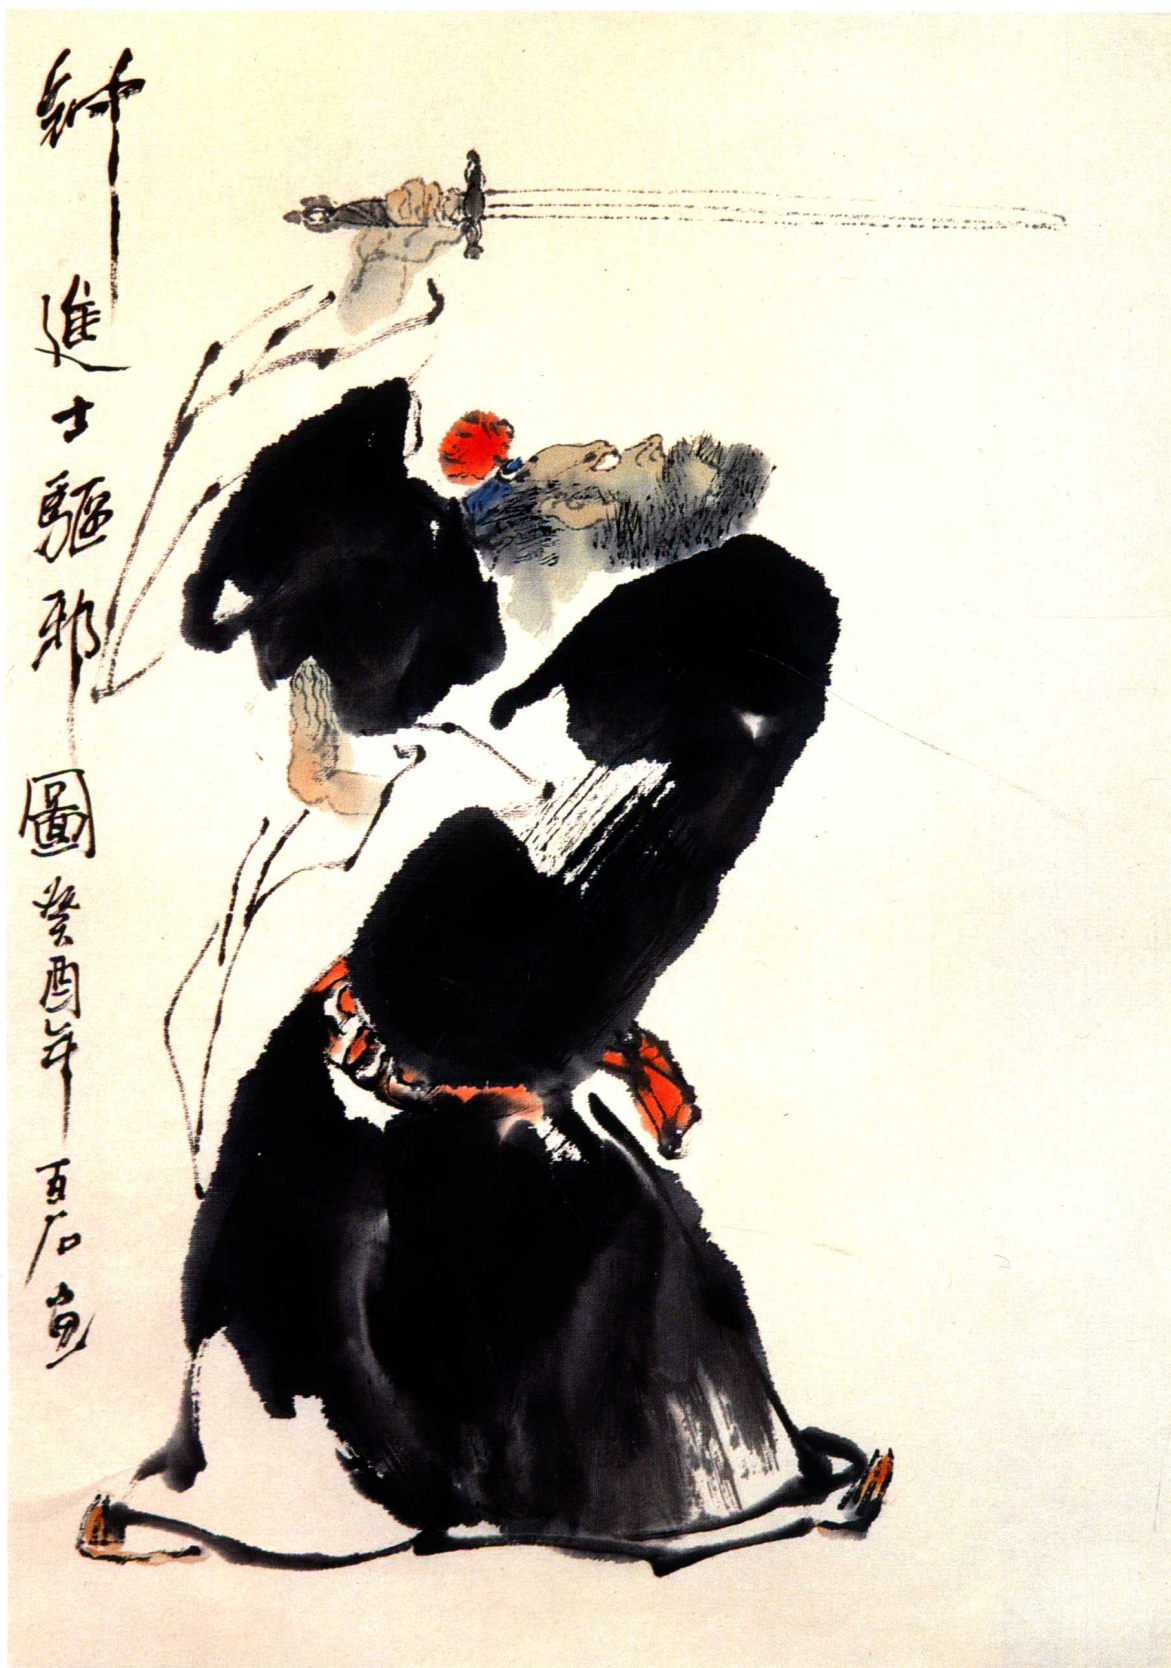 鈡進士驅邪圖癸酉年百石画